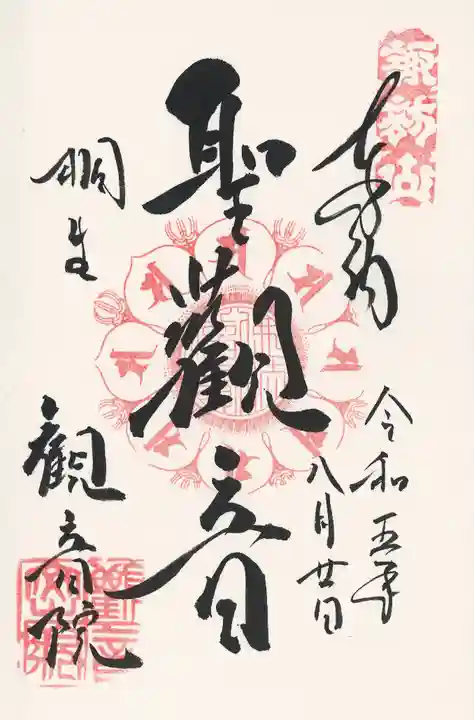 諏訪山
令和五年
八月廿日
聖觀音
桐生
觀音院